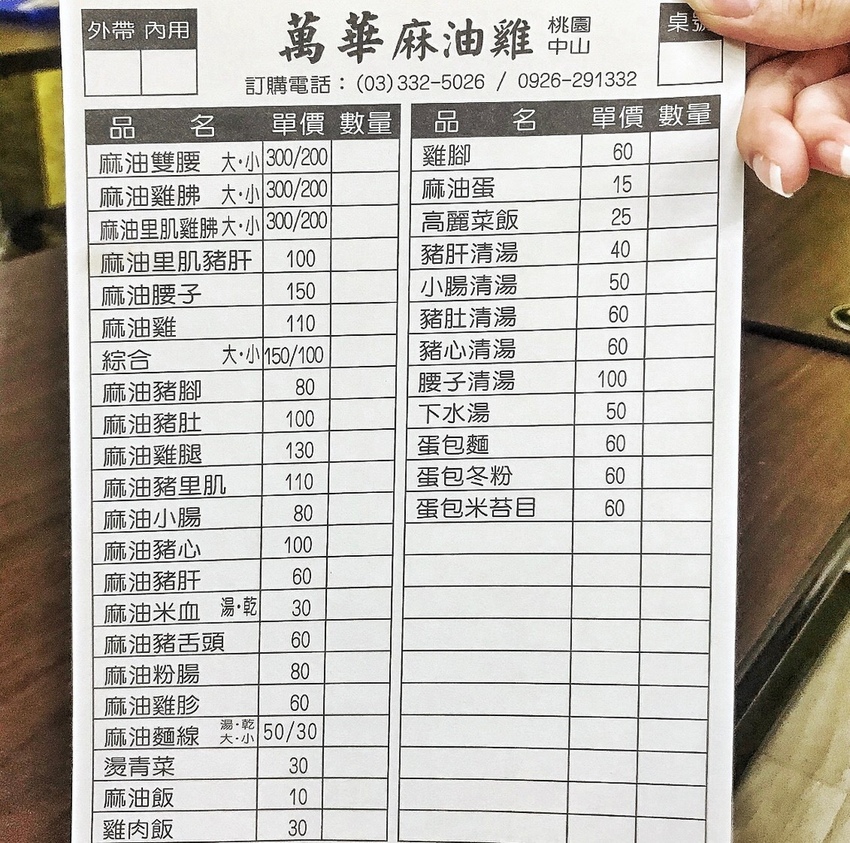 外帶 內用
萬華麻油雞 桃園
中山
桌號
訂購電話：(03)332-5026 / 0926-291332
品 名 單價 數量
麻油雙腰 大·小 300/200
麻油雞腓 大·小 300/200
麻油里肌雞腓 大·小 300/200
麻油里肌豬肝 100
麻油腰子 150
麻油雞 110
綜合 大·小 150/100
麻油豬腳 80
麻油豬肚 100
麻油雞腿 130
麻油豬里肌 110
麻油小腸 80
麻油豬心 100
麻油豬肝 60
麻油米血 湯·乾 30
麻油豬舌頭 60
麻油粉腸 80
麻油雞胗 60
麻油麵線 湯·乾 大·小 50/30
燙青菜 30
麻油飯 10
雞肉飯 30
品 名 單價 數量
雞腳 60
麻油蛋 15
高麗菜飯 25
豬肝清湯 40
小腸清湯 50
豬肚清湯 60
豬心清湯 60
腰子清湯 100
下水湯 50
蛋包麵 60
蛋包冬粉 60
蛋包米苔目 60